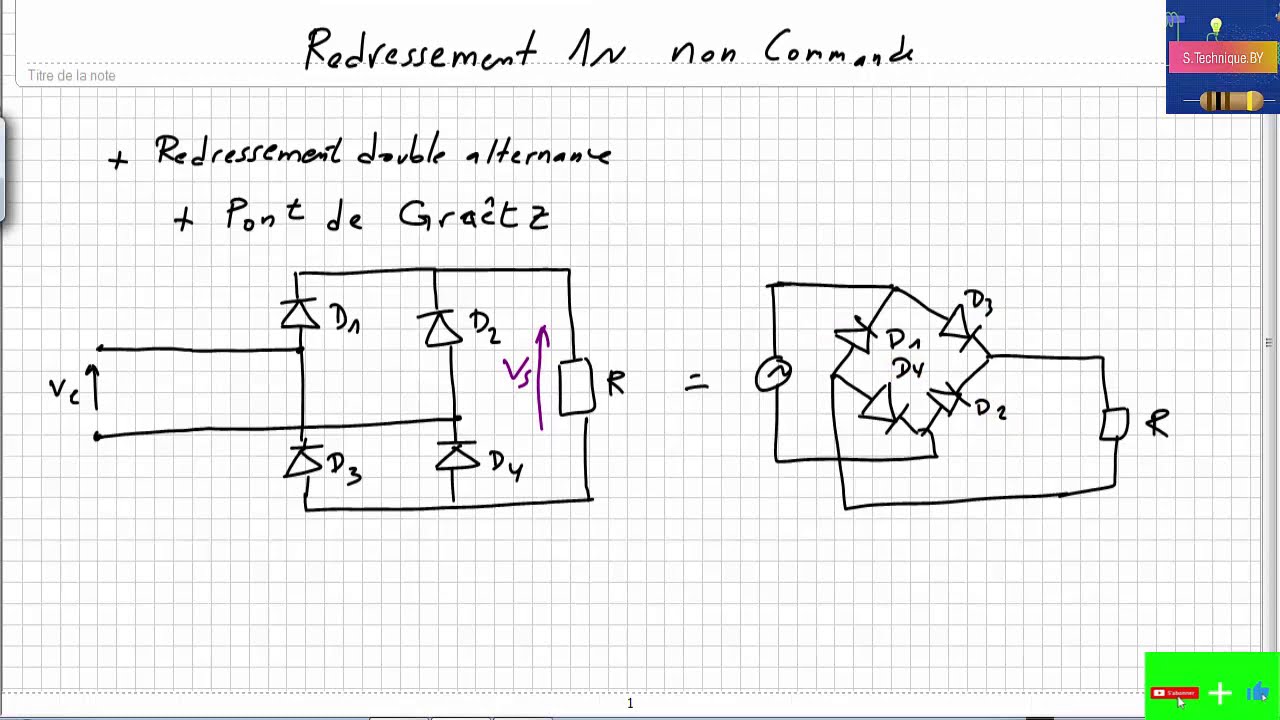 Redressement 1N non Commande
Titre de la note
S.Technique.BY
+ Redressement double alternance
+ Pont de Graêtz
D1
D2
Vs
R
Ve
D3
D4
=
D3
D1
D4
D2
R
1
S'abonner